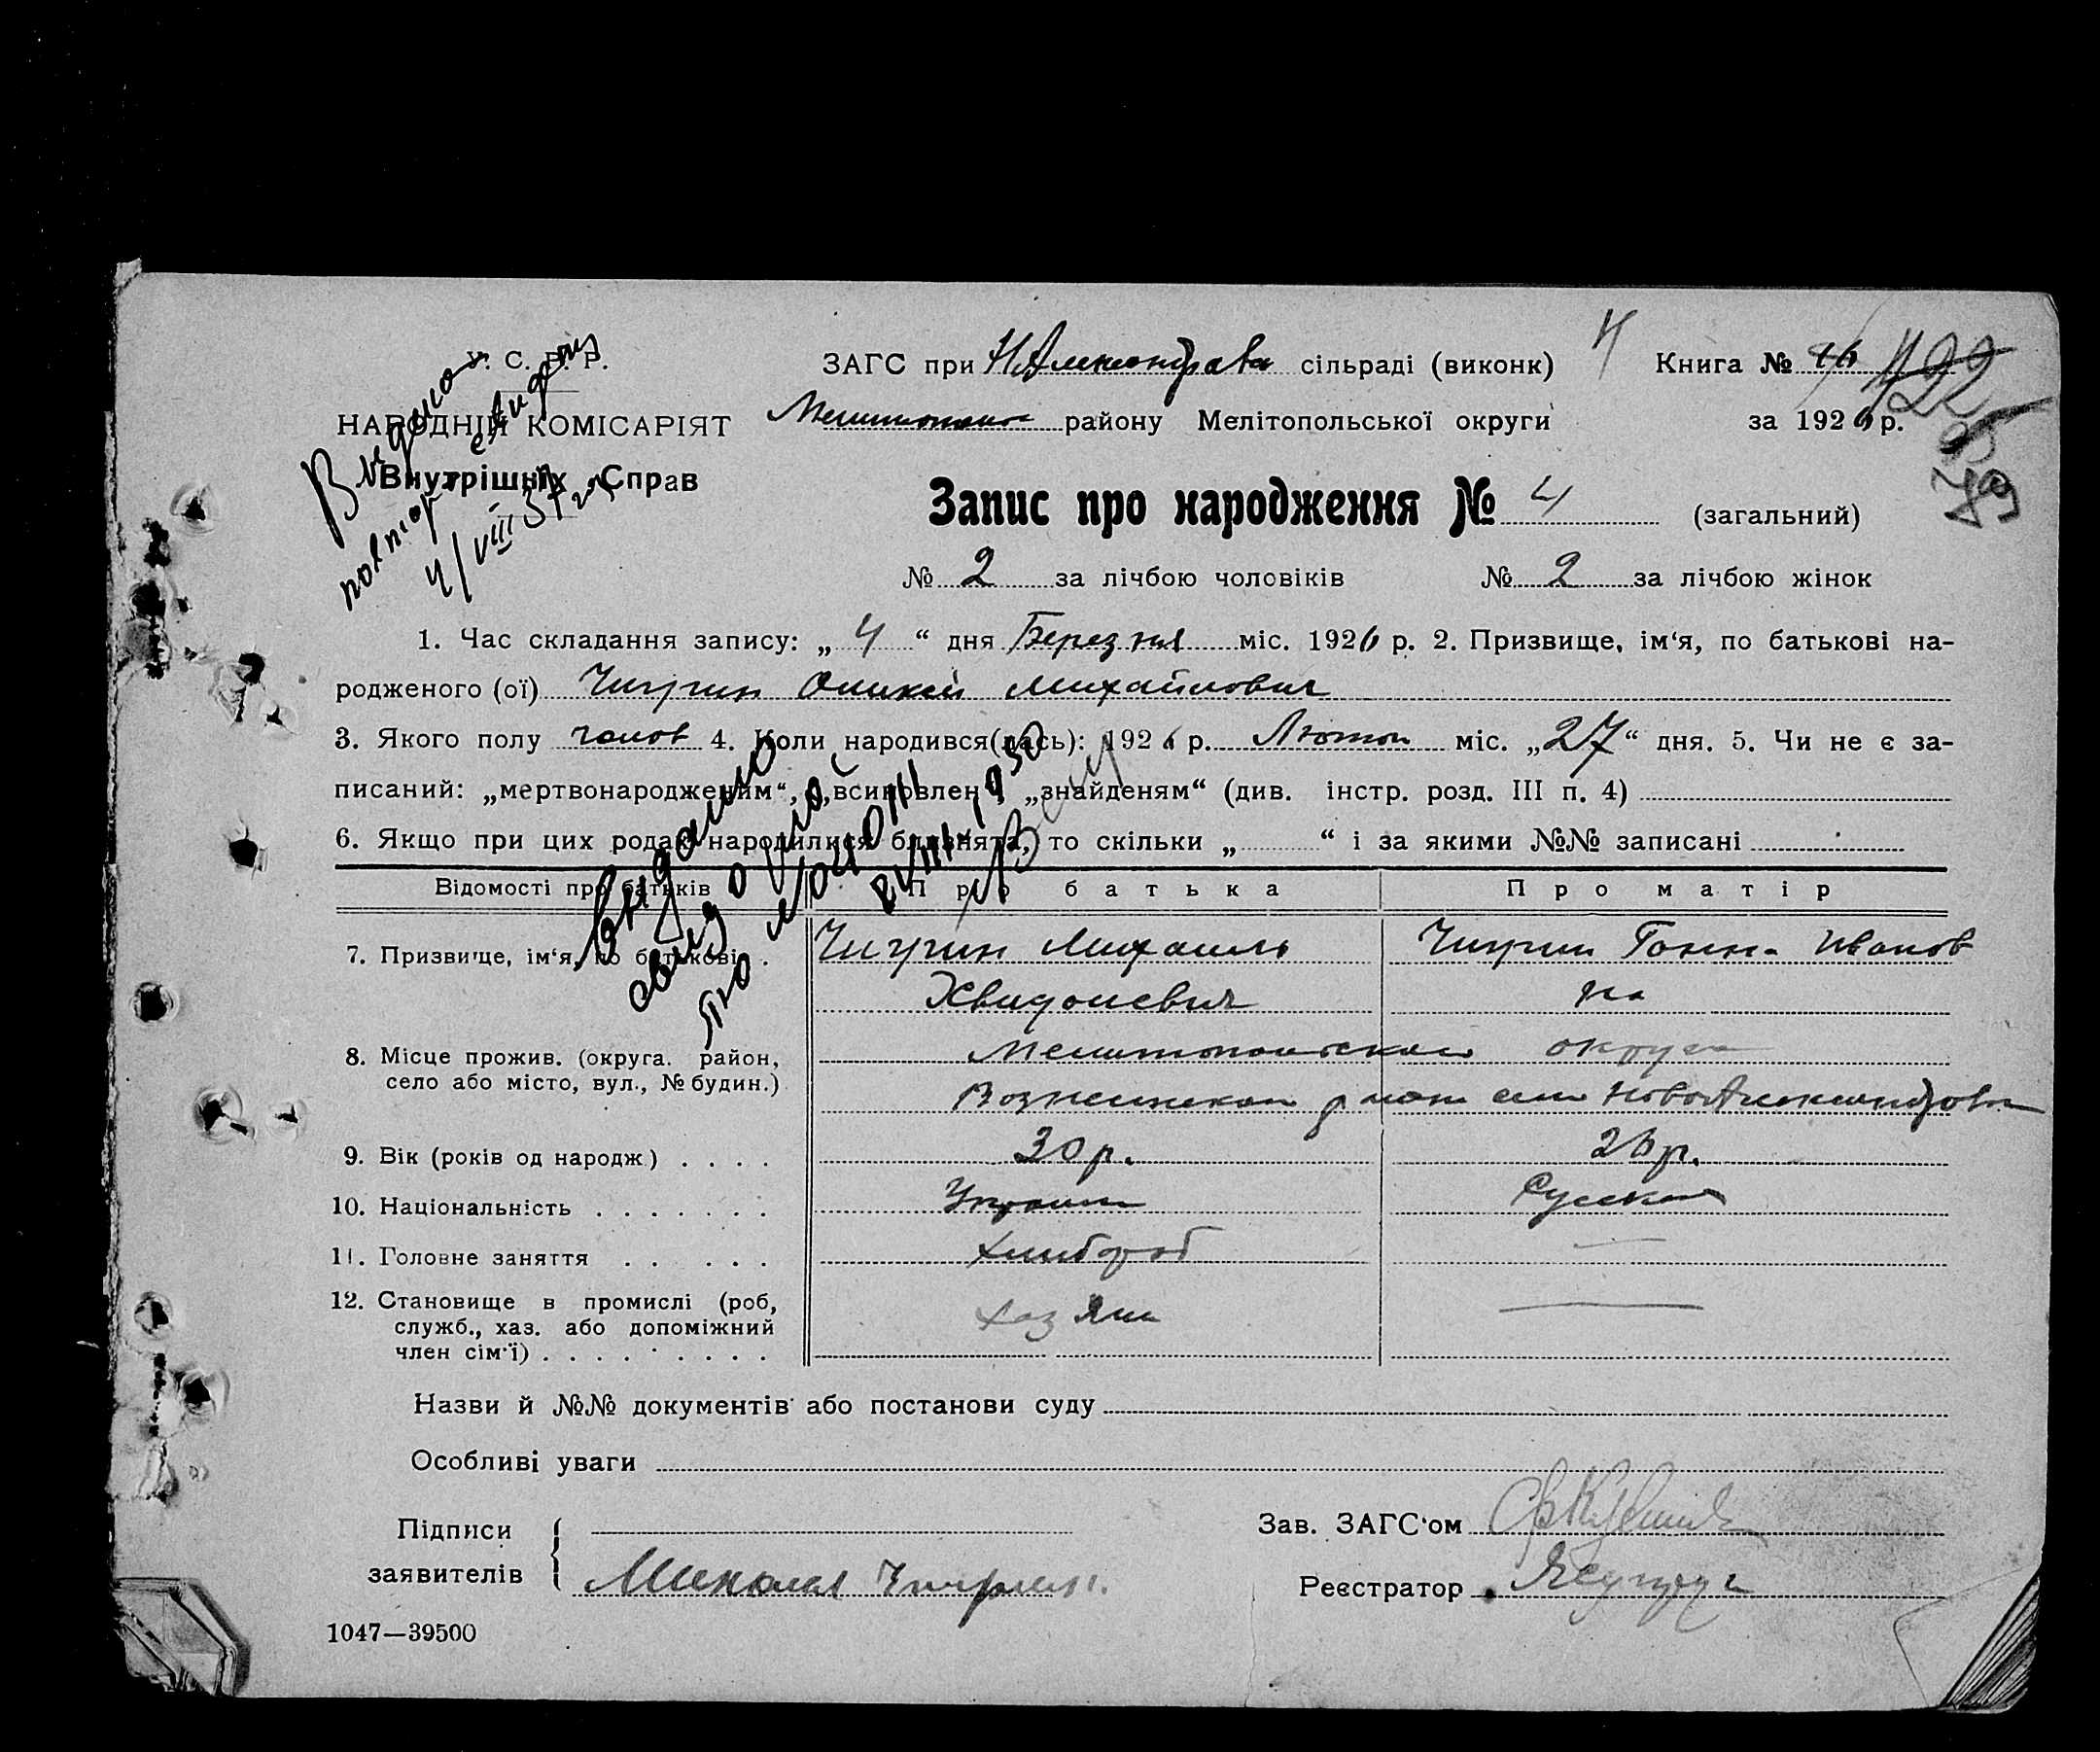 У. С. Р. Р.
НАРОДНІЙ КОМІСАРІЯТ
Внутрішніх Справ
Видано
повтор
4/VIII 37
ЗАГС при Н Александровк сільраді (виконк)
4
Книга № 16
422
районy Мелітопольської округи
за 1926 р.
Запис про народження № 4 (загальний)
№ 2 за лічбою чоловіків № 2 за лічбою жінок
1. Час складання запису: „4“ дня Березня міс. 1926 р. 2. Призвище, ім‘я, по батькові на-
родженого (ої) Чигрин Михайлович
3. Якого полу чолов 4. Коли народився(лась): 1926 р. Лютого міс. „27“ дня. 5. Чи не є за-
писаний: „мертвонародженим“, „всиновлен“, „знайденям“ (див. інстр. розд. III п. 4)
6. Якщо при цих родах народилися близнята, то скільки „ “ і за якими №№ записані
Видано
1950
Відомості про батьків Про батька Про матір
7. Призвище, ім‘я, по батькові . . Чигрин Михаиль Чигрин Ганна Иванов
Хвидоневич на
8. Місце прожив. (округа. район, Мелитопольской округа
село або місто, вул., № будин.) село НовоАлександровка
9. Вік (років од народж) . . . . 30 р. 26 р.
10. Національність . . . . . . . Украин Русская
11. Головне заняття . . . . . . Хлибороб —
12. Становище в промислі (роб, хазяин —
служб., хаз. або допоміжний
член сім‘ї) . . . . . . . . .
Назви й №№ документів або постанови суду
Особливі уваги
Підписи
заявителів Чигрин
Зав. ЗАГС‘ом
Реєстратор
1047—39500